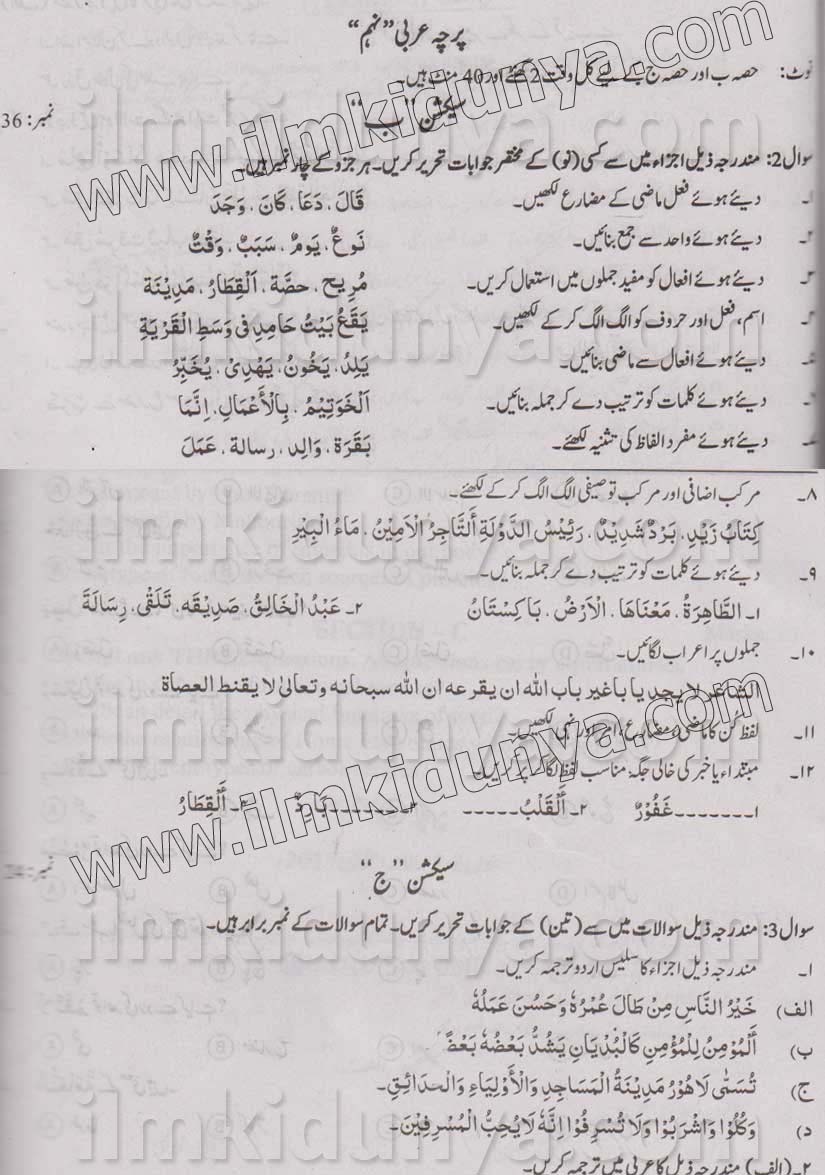 پرچہ عربی ”نہم“
نوٹ: حصہ ب اور حصہ ج کے لیے کل وقت 2 گھنٹے اور 40 منٹ ہیں۔
سیکشن ”ب“
نمبر: 36
سوال 2: مندرجہ ذیل اجزاء میں سے کسی (نو) کے مختصر جوابات تحریر کریں۔ ہر جزو کے چار نمبر ہیں۔
۱۔ دیئے ہوئے فعل ماضی کے مضارع لکھیں۔ قَالَ، دَعَا، كَانَ، وَجَدَ
۲۔ دیئے ہوئے واحد سے جمع بنائیں۔ نَوعٌ، يَومٌ، سَبَبٌ، وَقْتٌ
۳۔ دیئے ہوئے افعال کو مفید جملوں میں استعمال کریں۔ مُرِيح، حصَّة، اَلْقِطَارُ، مَدِيْنَة
۴۔ اسم، فعل اور حروف کو الگ الگ کر کے لکھیں۔ يَقَعُ بَيْتُ حَامِدٍ فِى وَسَطِ الْقَرْيَةِ
۵۔ دیئے ہوئے افعال سے ماضی بنائیں۔ يَلِدُ، يَخُونُ، يَهْدِىْ، يُخَبِّرُ
۶۔ دیئے ہوئے کلمات کو ترتیب دے کر جملہ بنائیں۔ اَلْخَوَتِيْمُ، بِالْأَعْمَالِ، اِنَّمَا
دیئے ہوئے مفرد الفاظ کی تثنیہ لکھئے۔ بَقَرَة، وَالِد، رسالة، عَمَلَ
۸۔ مرکب اضافی اور مرکب توصیفی الگ الگ کر کے لکھئے۔
كِتَابُ زَيْدٍ، بَرْدٌ شَدِيْدٌ، رَئِيْسُ الدَّوْلَةِ أَلتَّاجِرُ الْاَمِيْنُ، مَاءُ الْبِيْرِ
۹۔ دیئے ہوئے کلمات کو ترتیب دے کر جملہ بنائیں۔
۱۔ الطَّاهِرَةُ، مَعْنَاهَا، الْاَرْضُ، بَاكِسْتَانُ ۲۔ عَبْدُ الْخَالِقُ، صَدِيْقَه، تَلَقْى، رِسَالَةَ
۱۰۔ جملوں پر اعراب لگائیں۔
الشاعر لا يجد يا باغير باب الله ان يقرعه ان الله سبحانه وتعالىٰ لا يقنط العصاة
۱۱۔ لفظ کُن کا ماضی، مضارع، امر اور نہی لکھیں۔
۱۲۔ مبتداء یا خبر کی خالی جگہ مناسب لفظ لگا کر پر کریں۔
۱۔ ------- غَفُوْرٌ ۲۔ أَلْقَلْبُ ----- ۳۔ ------- بَارِدٌ ۴۔ أَلْقِطَارُ
سیکشن ”ج“
نمبر:
سوال 3: مندرجہ ذیل سوالات میں سے (تین) کے جوابات تحریر کریں۔ تمام سوالات کے نمبر برابر ہیں۔
۱۔ مندرجہ ذیل اجزاء کا سلیس اردو ترجمہ کریں۔
الف) خَيْرُ النَّاسِ مِنْ طَالَ عُمْرُهُ وَحَسُنَ عَمَلُهُ
ب) أَلْمُؤْمِنُ لِلْمُؤْمِنِ كَالْبُذْيَانِ يَشُدُّ بَعْضُهُ بَعْضً
ج) تُسَمّٰى لَاهُوْرُ مَدِيْنَةُ الْمَسَاجِدِ وَالْأَوْلِيَاءِ وَالْحَدَائِقِ۔
د) وَكُلُوْا وَاشْرَبُوْا وَلَا تُسْرِفُوْا اِنَّهُ لَا يُحِبُّ الْمُسْرِفِيْنَ۔
۲۔ (الف) مندرجہ ذیل کا عربی میں ترجمہ کریں۔
www.ilmkidunya.com
www.ilmkidunya.com
ilmkidunya.com
ilmkidunya.com
ilmkidunya.com
ilmkidunya.com
ilmkidunya.com
ilmkidunya.com
ilmkidunya.com